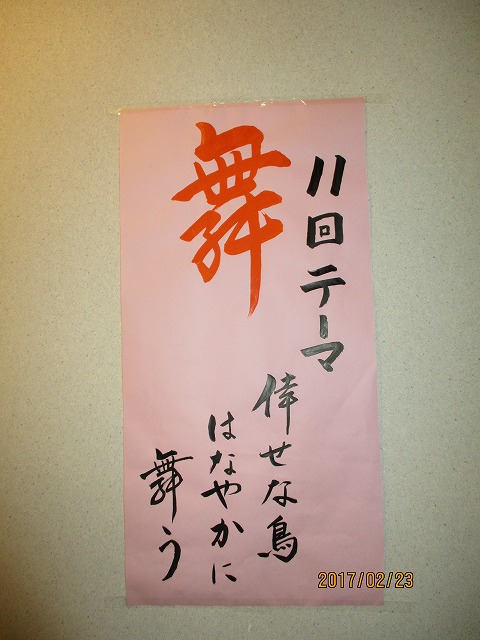 11回テーマ
舞
倖せな鳥
はなやかに
舞う
2017/02/23